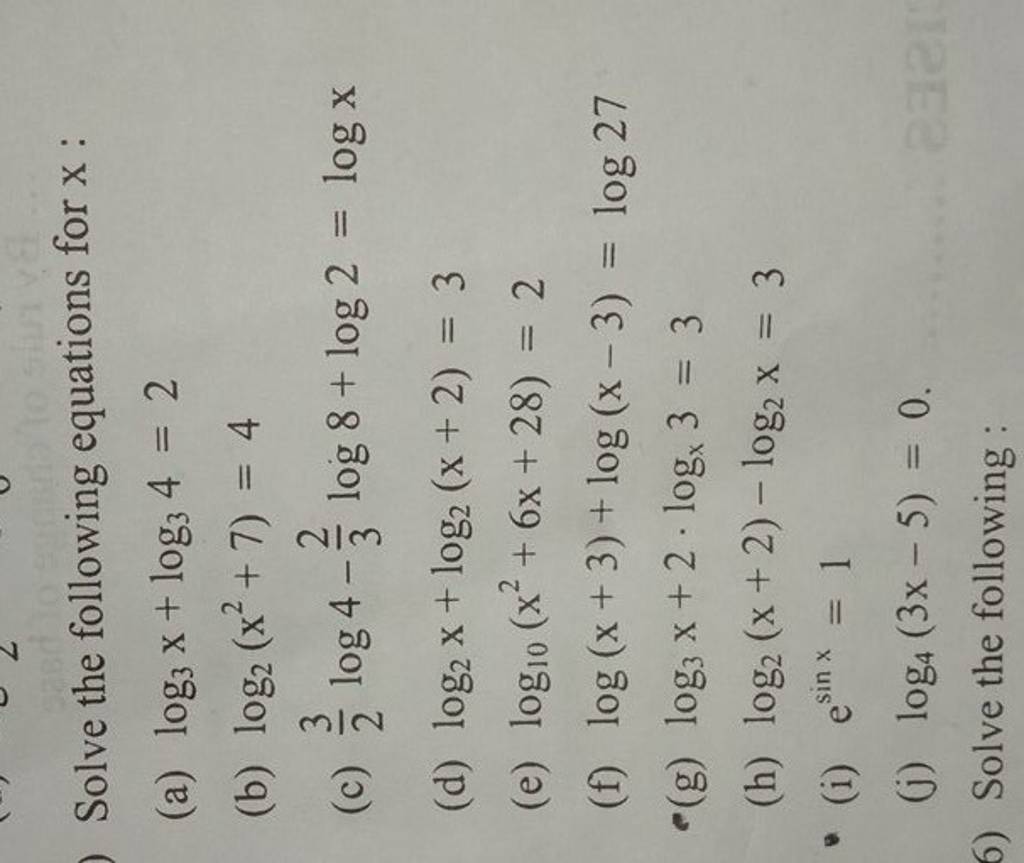 ) Solve the following equations for x :
(a) log₃ x + log₃ 4 = 2
(b) log₂ (x² + 7) = 4
(c) 3/2 log 4 − 2/3 log 8 + log 2 = log x
(d) log₂ x + log₂ (x + 2) = 3
(e) log₁₀ (x² + 6x + 28) = 2
(f) log (x + 3) + log (x − 3) = log 27
(g) log₃ x + 2 · logₓ 3 = 3
(h) log₂ (x + 2) − log₂ x = 3
(i) e^(sin x) = 1
(j) log₄ (3x − 5) = 0.
6) Solve the following :